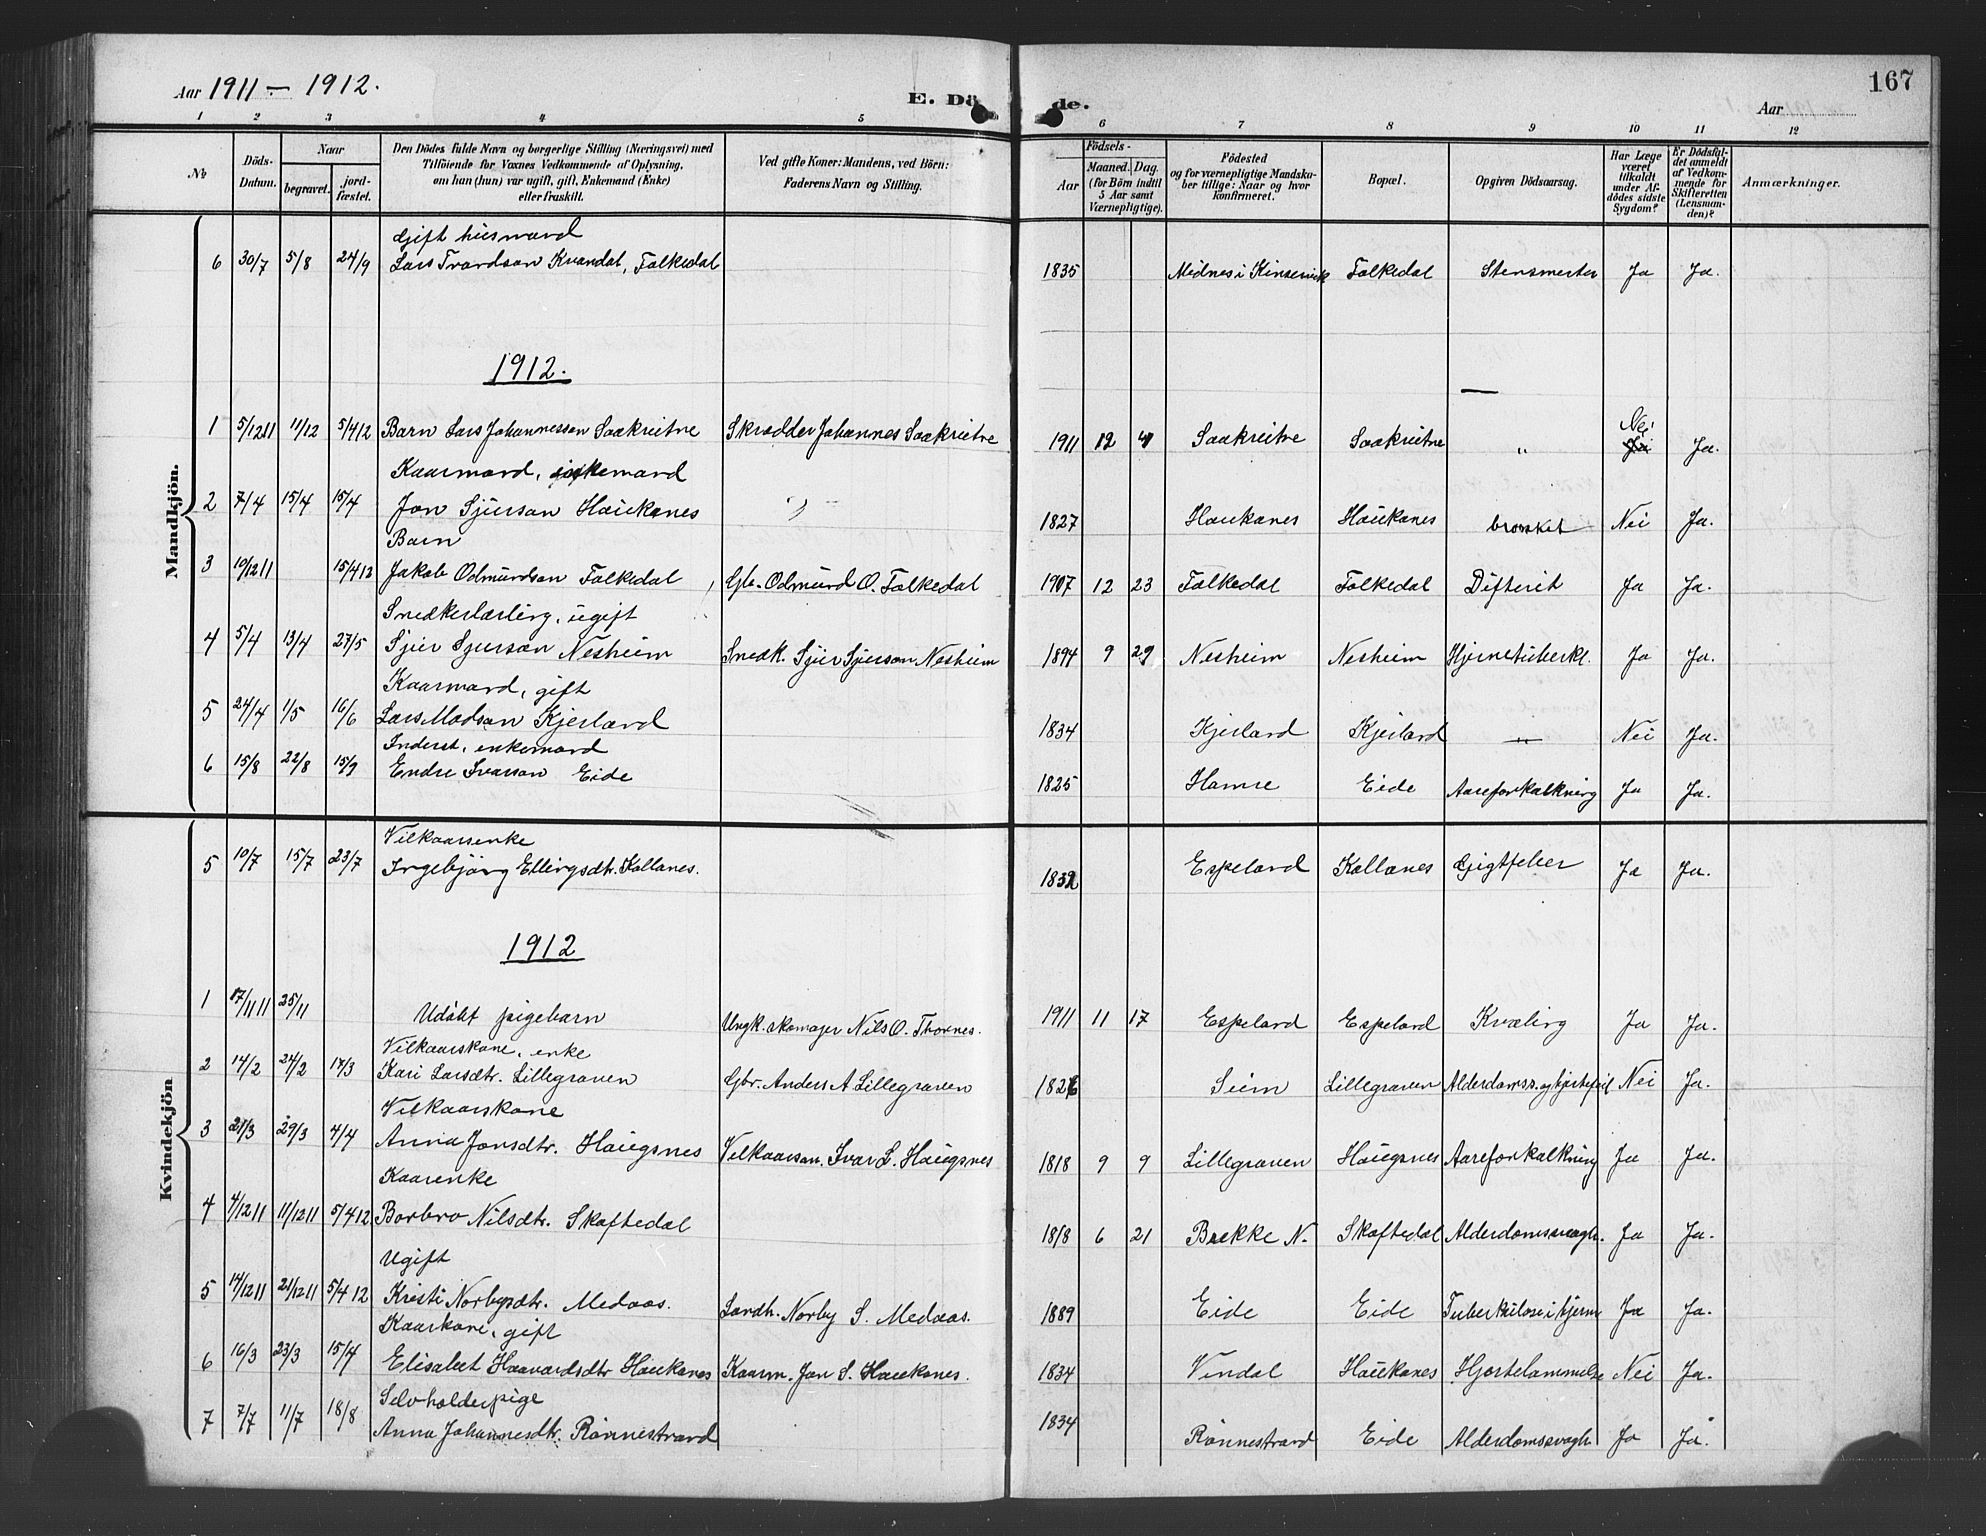 Aar 1911 – 1912.
E. Dö de.
Aar
167
1 2 3 4 5 6 7 8 9 10 11 12
№
Döds-Datum.
Naar
begravet.
jord-fæstet.
Den Dödes fulde Navn og borgerlige Stilling (Næringsvei) med
Tilföiende for Voxnes Vedkommende af Oplysning,
om han (hun) var ugift, gift, Enkemand (Enke)
eller fraskilt.
Ved gifte Koner: Mandens, ved Börn:
Faderens Navn og Stilling.
Födsels-
Aar
Maaned. Dag.
(for Börn indtil
5 Aar samt
Værnepligtige).
Födested
og for værnepligtige Mandska-
ber tillige: Naar og hvor
konfirmeret.
Bopæl.
Opgiven Dödsaarsag.
Har Læge
været
tilkaldt
under Af-
dödes sidste
Sygdom?
Er Dödsfal-
det anmeldt
af Vedkom-
mende for
Skifteretten
(Lensman-
den)?
Anmærkninger.
Mandkjön.
Gift husmand
6 30/7 5/8 24/9 Lars Trondson Kvandal, Folkedal 1835 Midnes i Kinservik Folkedal Stensmerter Ja Ja.
1912.
1 5/12 11 11/12 5/4 12 Barn Lars Johannesson Saakvitne Skrædder Johannes Saakvitne 1911 12 4 Saakvitne Saakvitne " Nei Ja Ja.
Kaarmand, enkemand
2 7/4 15/4 15/4 Jon Sjurson Haukanes " 1827 Haukanes Haukanes brosket Nei Ja.
Barn
3 10/12 11 15/4 12 Jakob Odmundson Folkedal Gb. Odmund O. Folkedal 1907 12 23 Folkedal Folkedal Difterit Ja Ja.
Snedkerlærling, ugift
4 5/4 13/4 27/5 Sjur Sjurson Nesheim Snedk. Sjur Sjurson Nesheim 1894 9 29 Nesheim Nesheim Hjernetuberkl. Ja Ja.
Kaarmand, gift
5 24/4 1/5 16/6 Lars Madson Kjerland 1834 Kjerland Kjerland — " — Nei Ja.
Inderst, enkemand
6 15/8 22/8 15/9 Endre Ivarson Eide 1825 Hamre Eide Aareforkalkning Ja Ja.
Kvindekjön
Vilkaarsenke
5 10/7 15/7 23/7 Ingebjörg Ellingsdtr. Kollanes. 1832 Espeland Kollanes Gigtfeber Ja Ja.
1912
1 17/11 11 25/11 Udöbt pigebarn Ungk. skomager Nils O. Thornes. 1911 11 17 Espeland Espeland Kvæling Ja Ja.
Vilkaarskone, enke
2 14/2 24/2 17/3 Kari Larsdtr. Lillegraven Gbr. Anders A Lillegraven 1826 Seim Lillegraven Alderdomss. og hjertefeil Nei Ja.
Vilkaarskone
3 21/3 29/3 4/4 Anna Jonsdtr. Haugsnes Vilkaarsm. Ivar L. Haugsnes 1818 9 9 Lillegraven Haugsnes Aareforkalkning Ja Ja.
Kaarenke
4 4/12 11 11/12 11 5/4 12 Borbro Nilsdtr. Skaftedal 1818 6 21 Brekke N. Skaftedal Alderdomssvagh. Ja Ja.
Ugift
5 14/12 11 21/12 11 5/4 12 Kristi Norbysdtr. Medaas. Landh. Norby S. Medaas. 1889 Eide Eide Tuberkulose i hjerne Ja Ja.
Kaarkone, gift
6 16/3 23/3 15/4 Elisabet Haavardsdtr Haukanes Kaarm. Jon S. Haukanes. 1834 Vindal Haukanes Hjertelammelse Nei Ja.
Selvholderpige
7 7/7 11/7 18/8 Anna Johannesdtr. Rönnestrand 1834 Rönnestrand Eide Alderdomssvagh. Ja Ja.